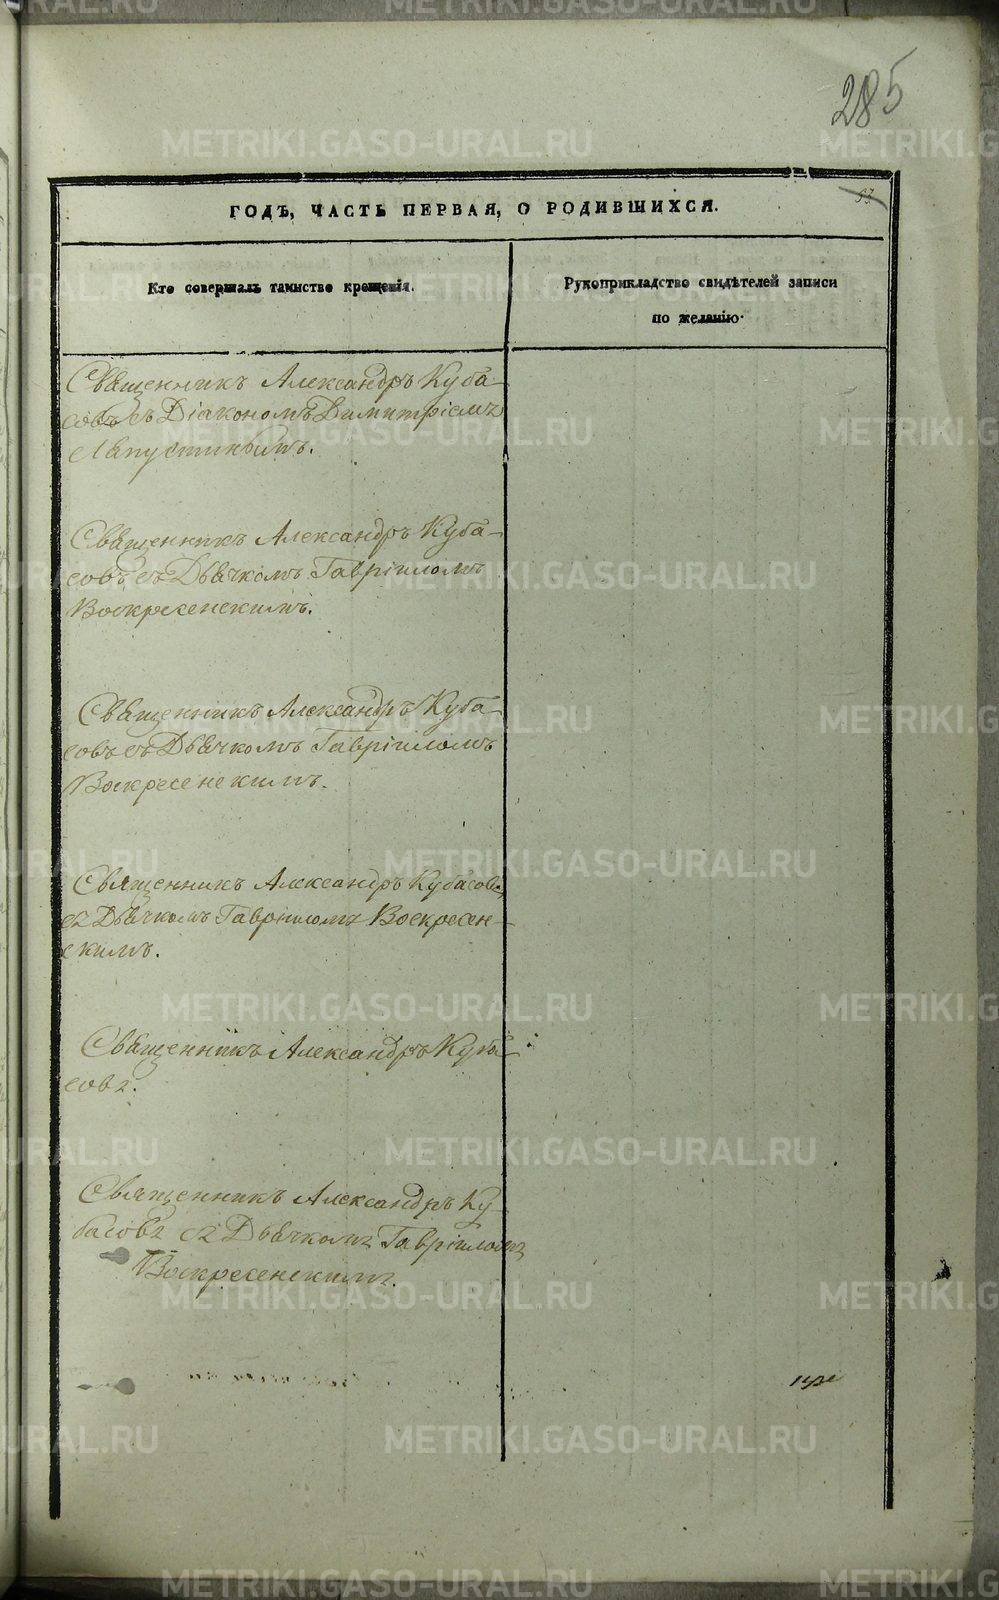 285
53.
ГОДЪ, ЧАСТЬ ПЕРВАЯ, О РОДИВШИХСЯ.
Кто совершалъ таинство крещенія.
Рукоприкладство свидѣтелей записи
по желанію.
Священникъ Александръ Куба-
совъ съ Діакономъ Димитріемъ
Лапустинымъ.
Священникъ Александръ Куба-
совъ съ Дьячкомъ Гавріиломъ
Воскресенскимъ.
Священникъ Александръ Куба-
совъ съ Дьячкомъ Гавріиломъ
Воскресенскимъ.
Священникъ Александръ Кубасовъ
съ Дьячкомъ Гавріиломъ Воскресен-
скимъ.
Священникъ Александръ Куба-
совъ.
Священникъ Александръ Ку-
басовъ съ Дьячкомъ Гавріиломъ
Воскресенскимъ.
METRIKI.GASO-URAL.RU